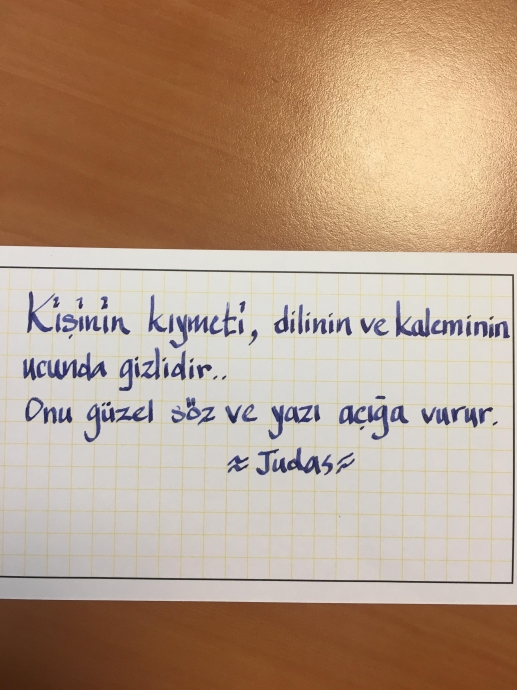 Kişinin kıymeti, dilinin ve kaleminin
ucunda gizlidir..
Onu güzel söz ve yazı açığa vurur.
≈ Judas ≈